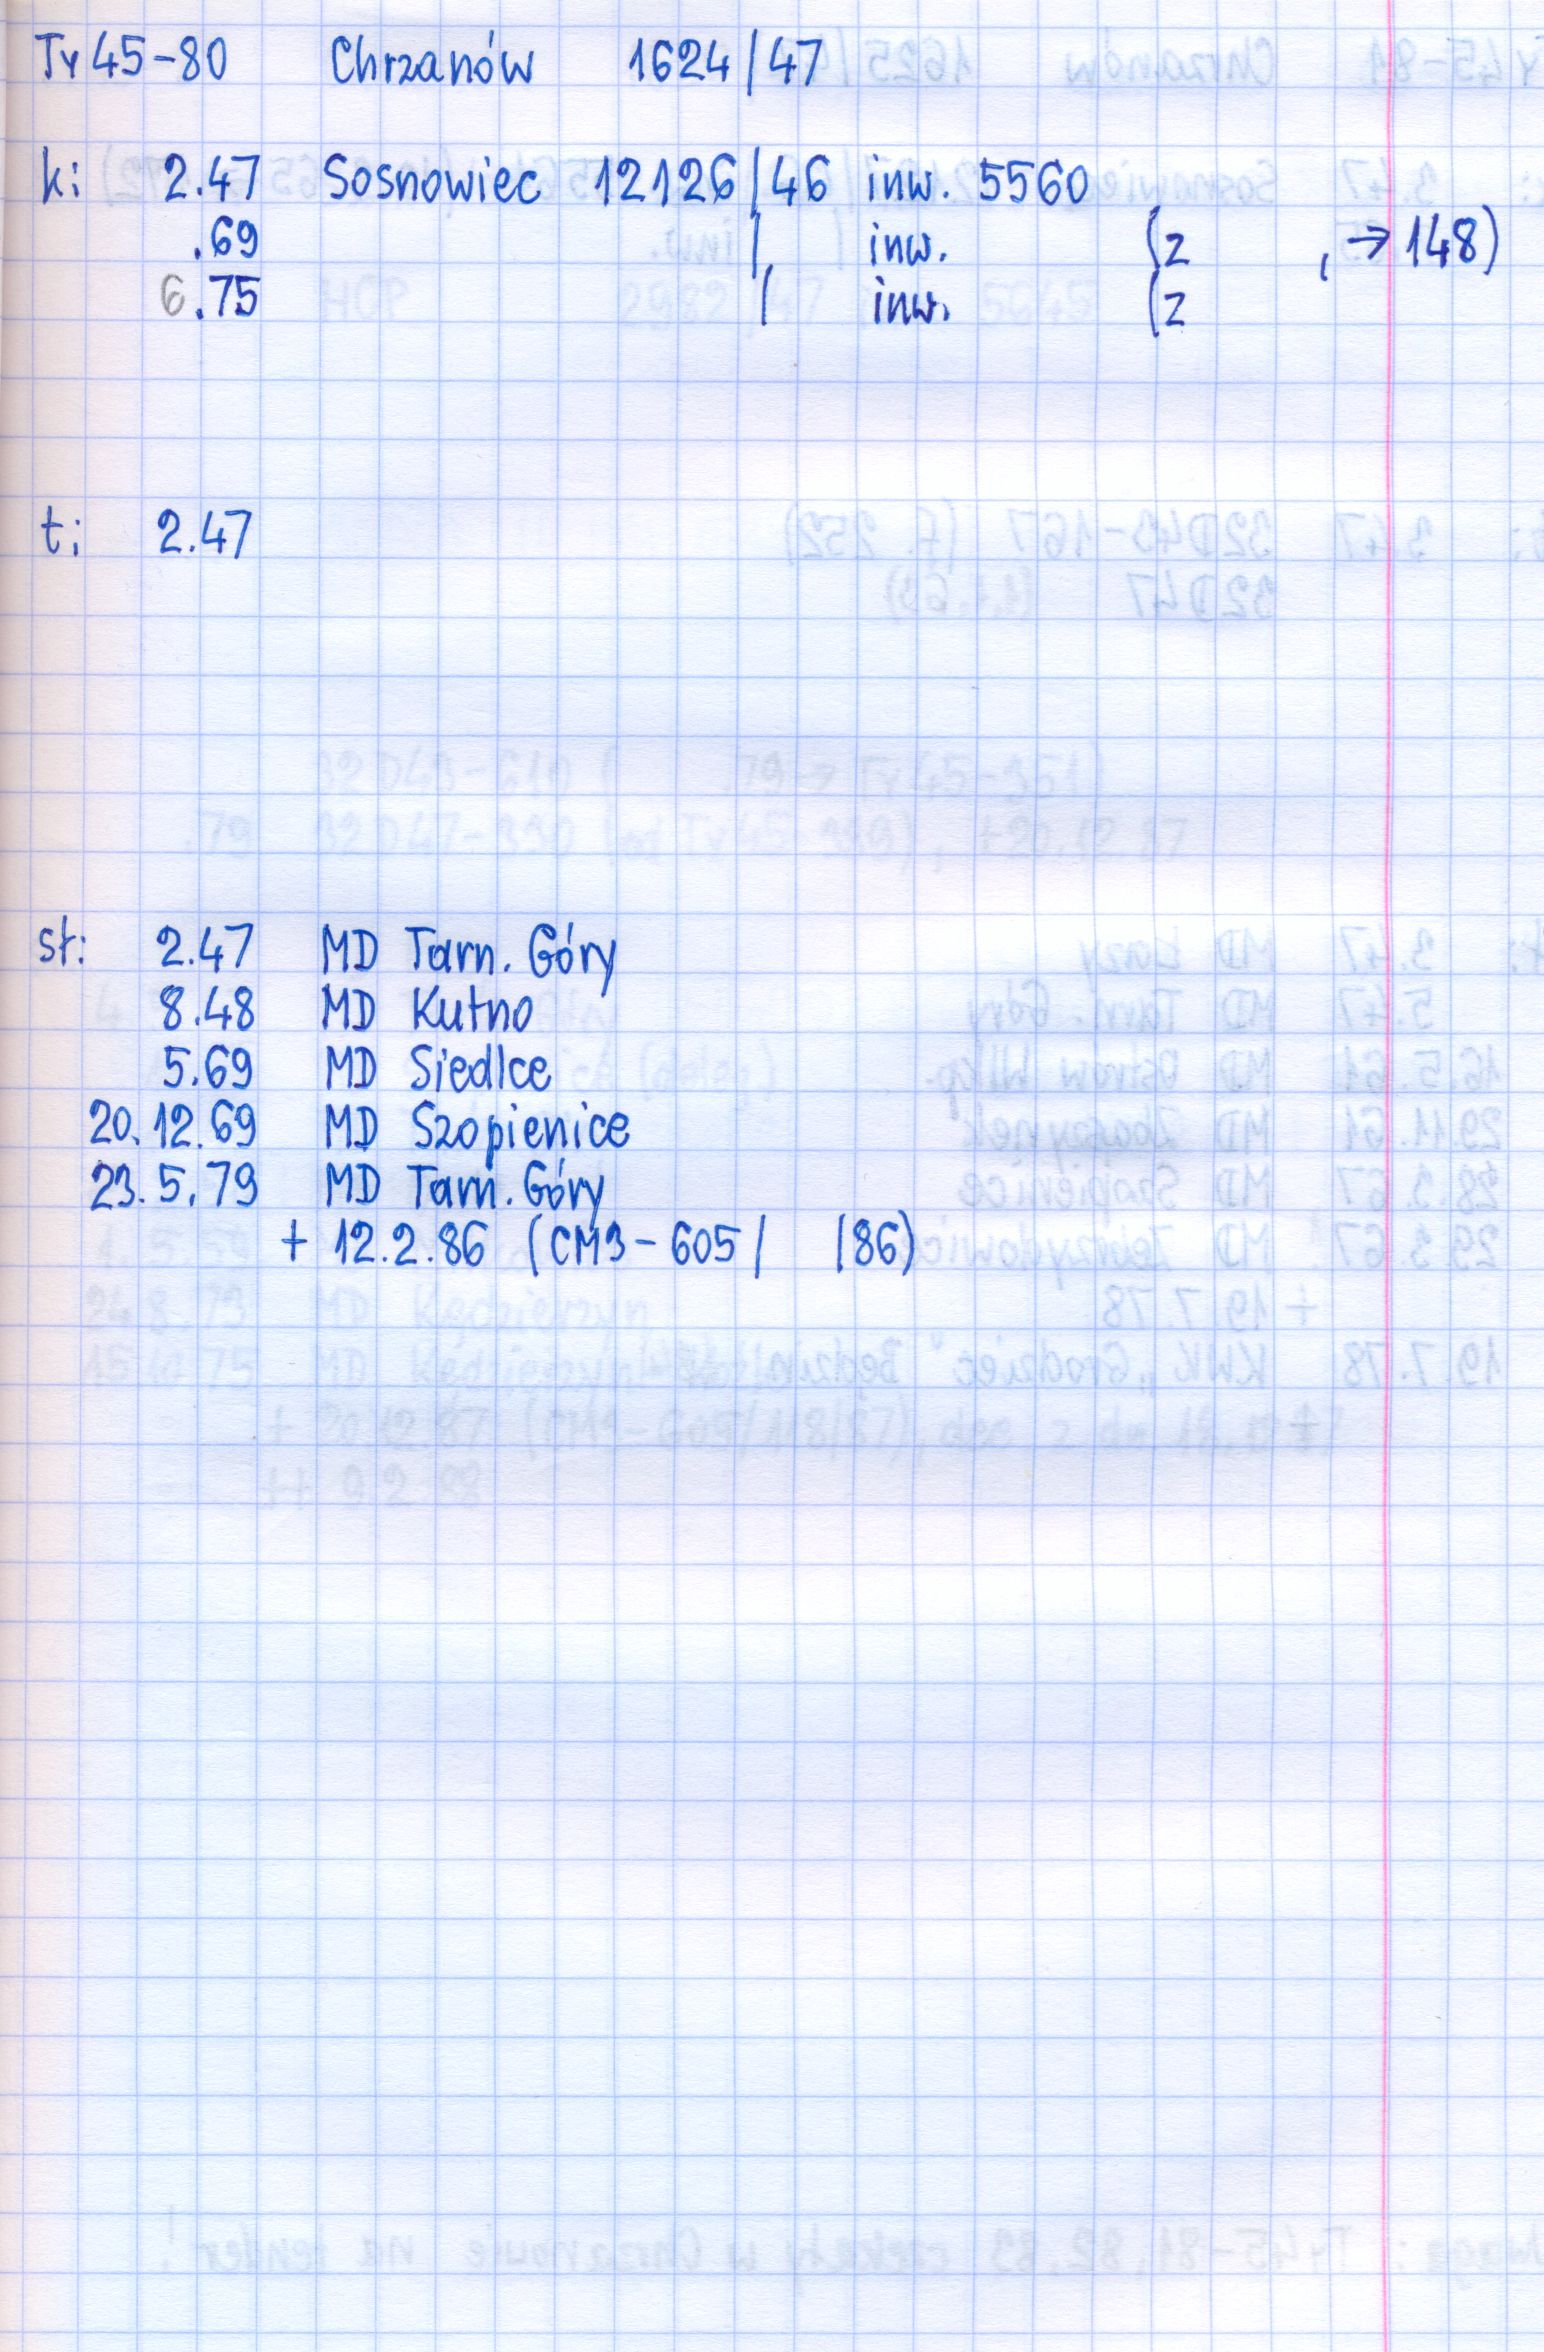 Ty45-80 Chrzanów 1624/47
k: 2.47 Sosnowiec 12126/46 inw. 5560
.69 / inw. (z , → 148)
6.75 / inw. (z
t: 2.47
sł: 2.47 MD Tarn. Góry
8.48 MD Kutno
5.69 MD Siedlce
20.12.69 MD Szopienice
23.5.79 MD Tarn. Góry
+ 12.2.86 (CM3-605/ /86)